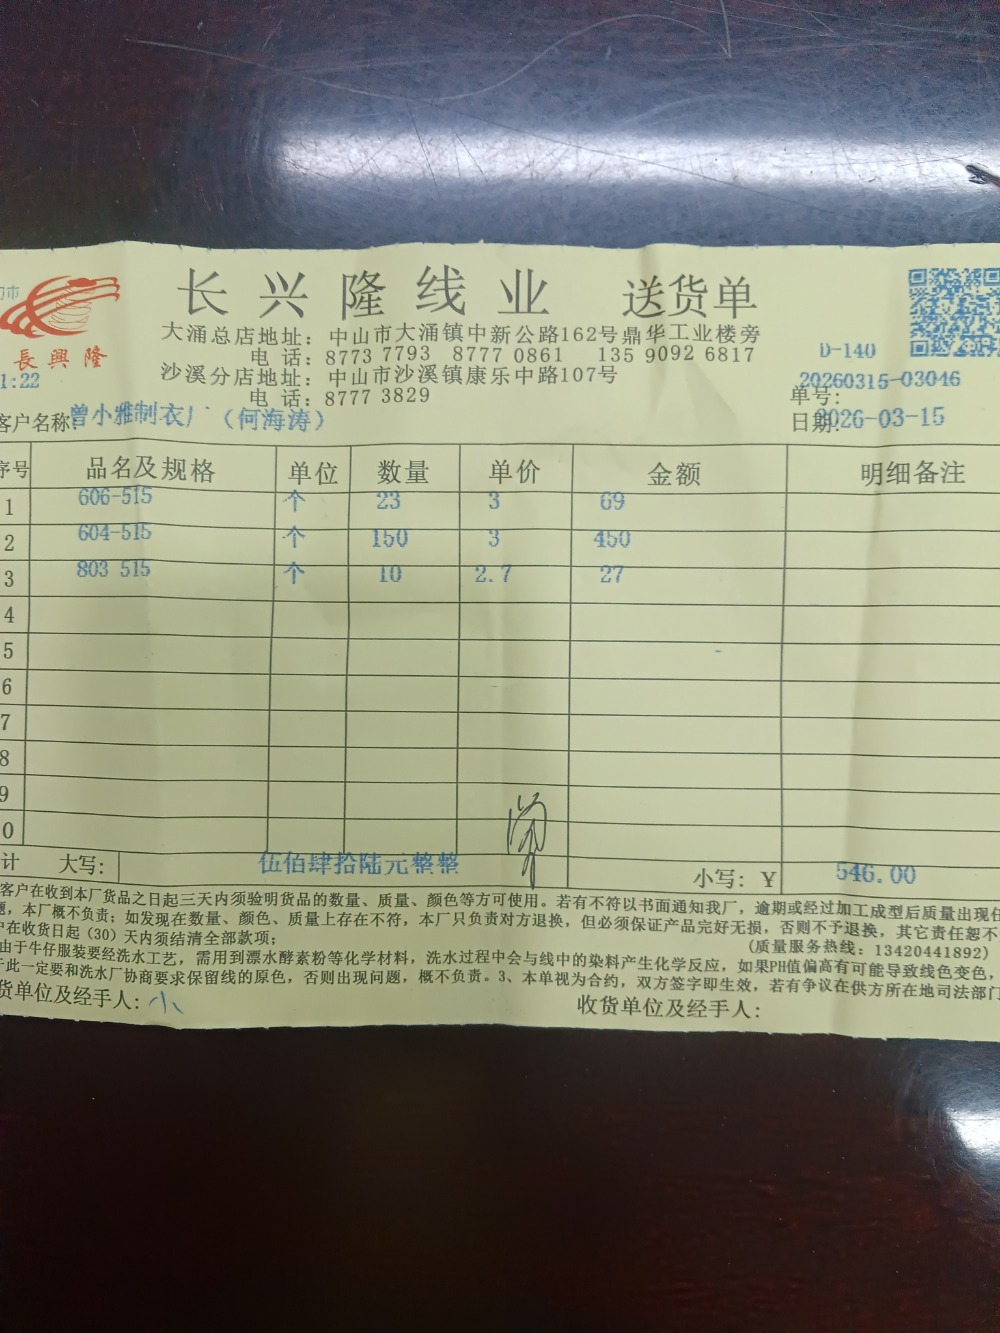 长兴隆线业 送货单
長興隆
大涌总店地址：中山市大涌镇中新公路162号鼎华工业楼旁
电 话：8773 7793 8777 0861 135 9092 6817
沙溪分店地址：中山市沙溪镇康乐中路107号
电 话：8777 3829
D-140
1:22
单号：20260315-03046
客户名称：曾小雅制衣厂（何海涛）
日期：2026-03-15
序号 品名及规格 单位 数量 单价 金额 明细备注
1 606-515 个 23 3 69
2 604-515 个 150 3 450
3 803 515 个 10 2.7 27
4
5
6
7
8
9
0
计 大写： 伍佰肆拾陆元整整 小写：￥ 546.00
客户在收到本厂货品之日起三天内须验明货品的数量、质量、颜色等方可使用。若有不符以书面通知我厂，逾期或经过加工成型后质量出现任
题，本厂概不负责；如发现在数量、颜色、质量上存在不符，本厂只负责对方退换，但必须保证产品完好无损，否则不予退换，其它责任恕不
户在收货日起（30）天内须结清全部款项；
（质量服务热线：13420441892）
由于牛仔服装要经洗水工艺，需用到漂水酵素粉等化学材料，洗水过程中会与线中的染料产生化学反应，如果PH值偏高有可能导致线色变色，
于此一定要和洗水厂协商要求保留线的原色，否则出现问题，概不负责。3、本单视为合约，双方签字即生效，若有争议在供方所在地司法部门
货单位及经手人：小
收货单位及经手人：